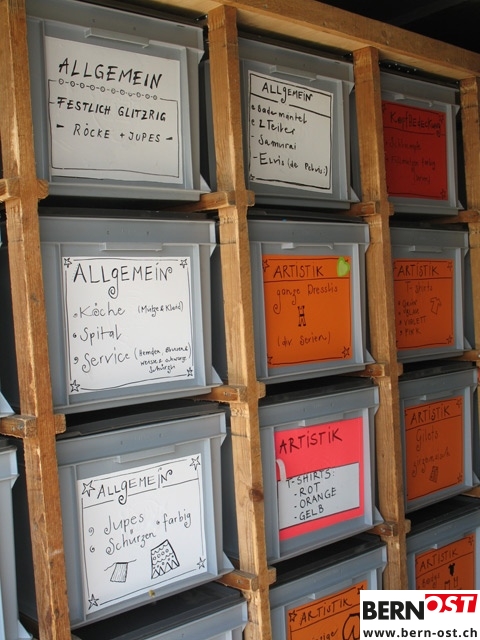 ALLGEMEIN
- FESTLICH GLITZRIG
- RÖCKE + JUPES -
ALLGEMEIN
Bademantel
- Samurai
- Elvis (de Pelvis!)
Kopfbedeckung
ALLGEMEIN
Köche (Mütze & Kleid)
Spital
Service (Hemden, Blusen &
weisse & schwarze
Schürzen)
ARTISTIK
ganze Dresslis
(div. Serien)
ARTISTIK
T-Shirts
ALLGEMEIN
Jupes
Schürzen farbig
ARTISTIK
T-SHIRTS
- ROT
- ORANGE
- GELB
ARTISTIK
Gilets
ARTISTIK
ARTISTIK
BERNOST
www.bern-ost.ch